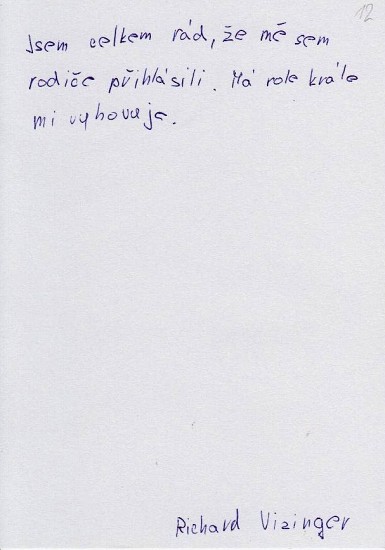 12
Jsem celkem rád, že mě sem
rodiče přihlásili. Má role krále
mi vyhovuje.
Richard Vizinger